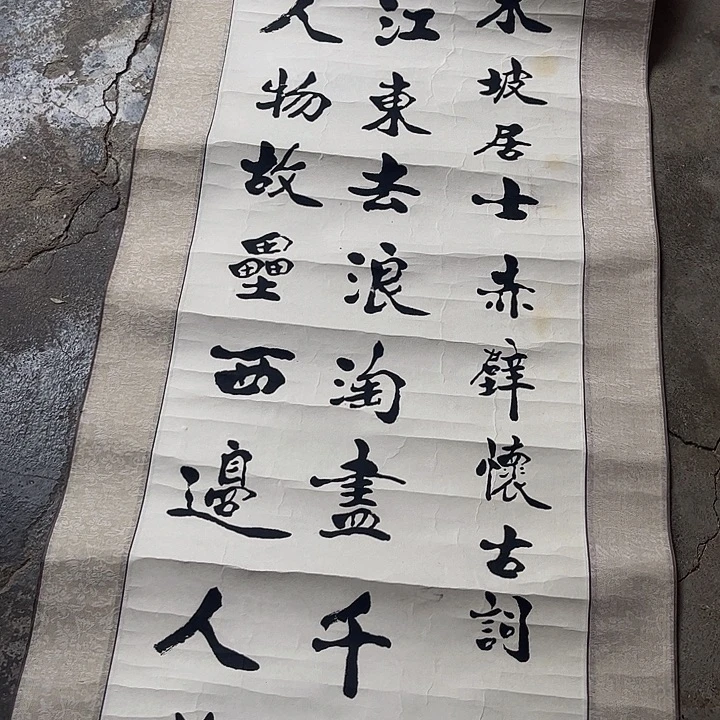 東坡居士赤壁懷古詞
江東去浪淘盡千
人物故壘西邊人